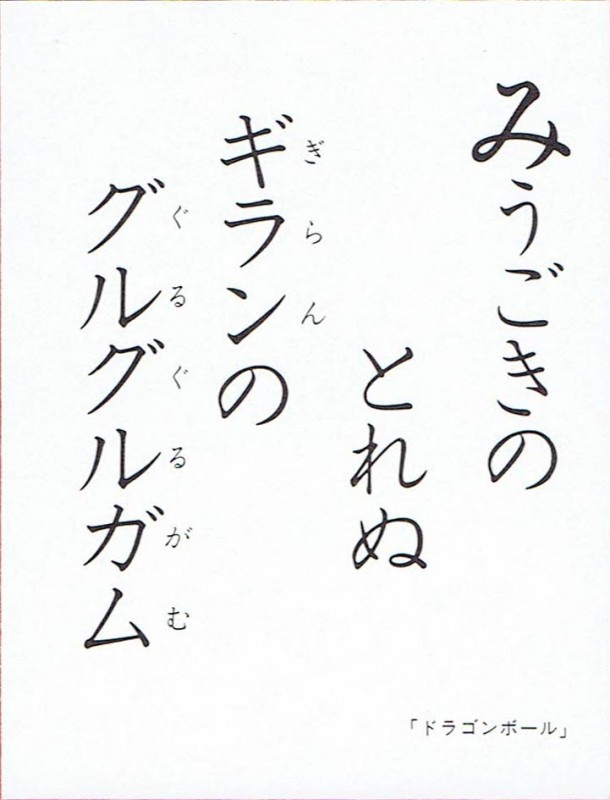 みうごきの
とれぬ
ギランの
ぎらん
グルグルガム
ぐるぐるがむ
「ドラゴンボール」